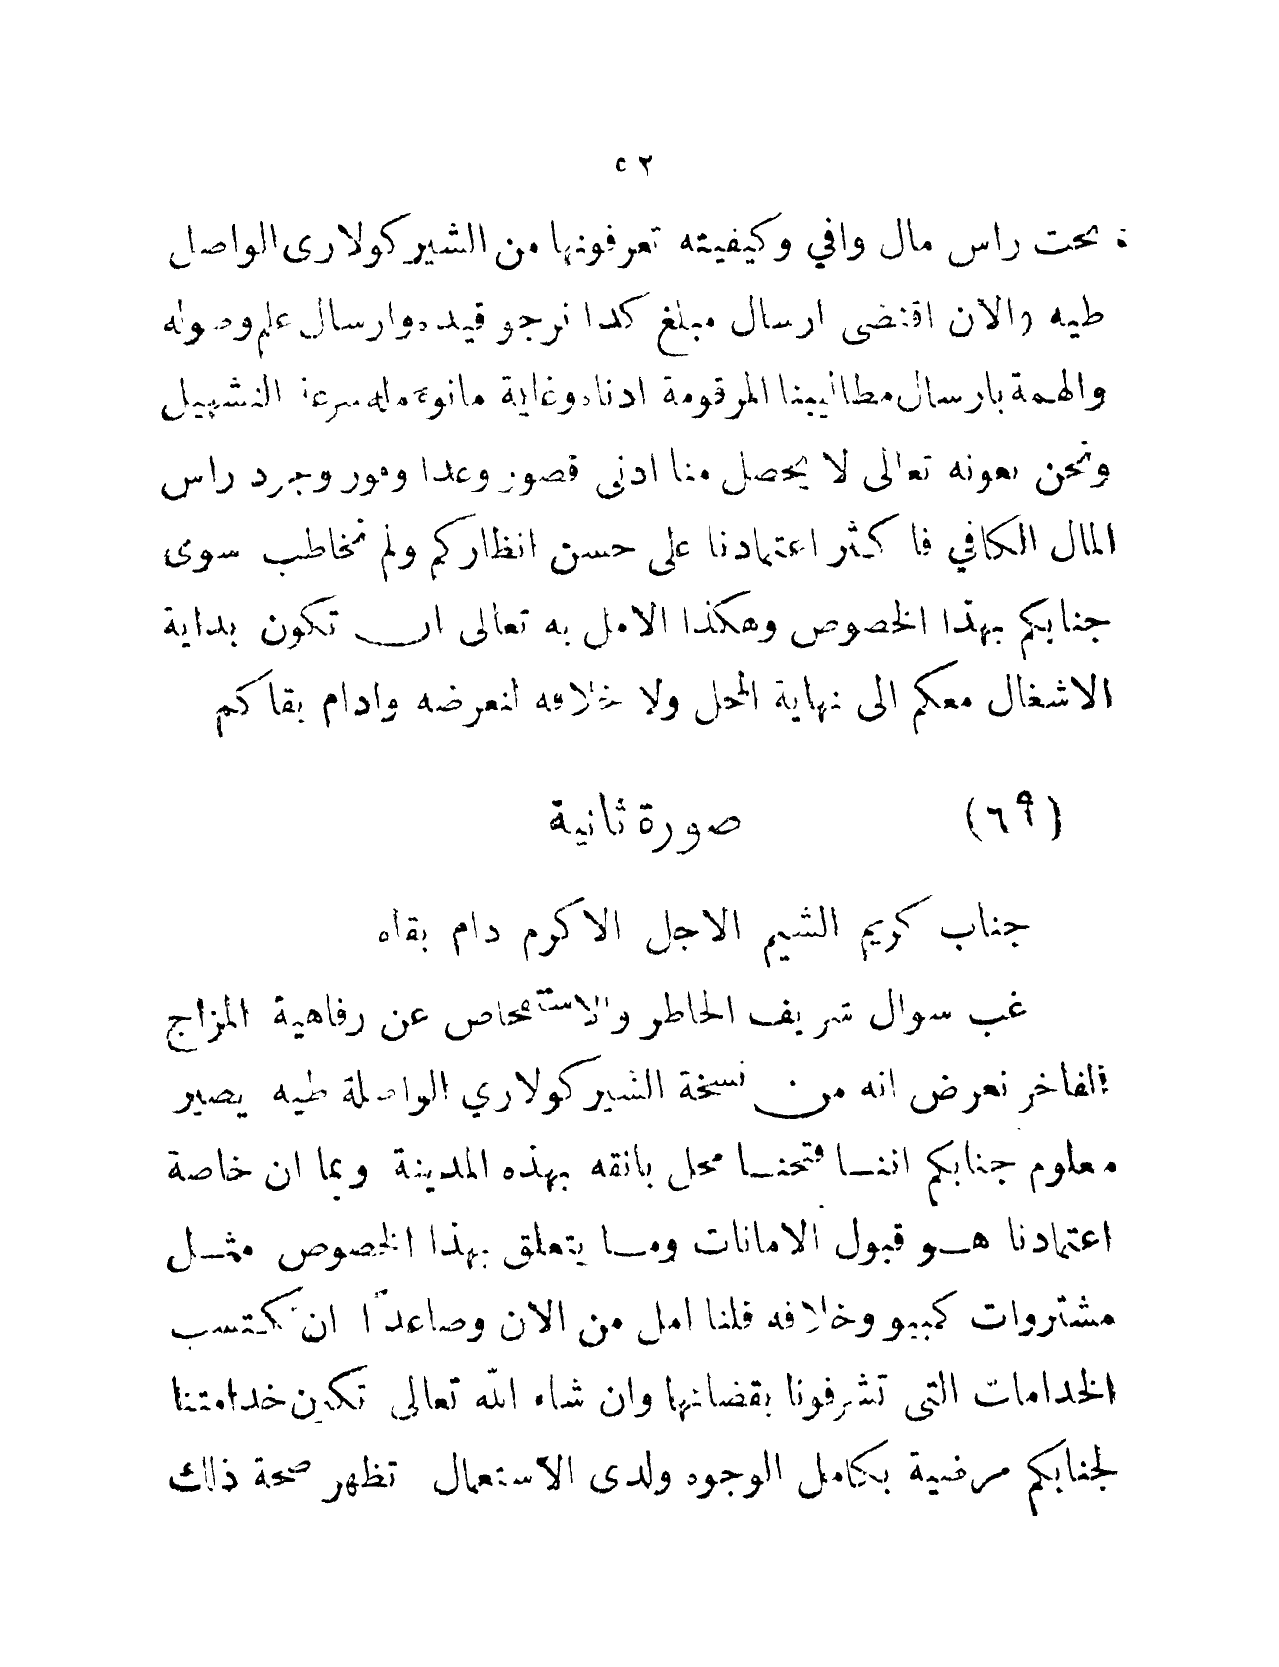 ٥٢
تحت راس مال وافي وكيفيته تعرفونها من الشيركولارى الواصل
طيه والان اقتضى ارسال مبلغ كذا نرجو قيده وارسال علم وصوله
والهمة بارسال مطاليبنا المرقومة ادناه وغاية مانوءمله سرعة التشهيل
ونحن بعونه تعالى لا يحصل منا ادنى قصور وعدا وفور وجرد راس
المال الكافي فاكثر اعتمادنا على حسن انظاركم ولم نخاطب سوى
جنابكم بهذا الخصوص وهكذا الامل به تعالى ان تكون بداية
الاشغال معكم الى نهاية المحل ولا خلافه لنعرضه وادام بقاكم
(٦٩) صورة ثانية
جناب كريم الشيم الاجل الاكرم دام بقاه
غب سوال شريف الخاطر والاستفحاص عن رفاهية المزاج
الفاخر نعرض انه من نسخة الشيركولاري الواصلة طيه يصير
معلوم جنابكم اننا فتحنا محل بانقه بهذه المدينة وبما ان خاصة
اعتمادنا هو قبول الامانات وما يتعلق بهذا الخصوص مثل
مشتروات كمبيو وخلافه فلنا امل من الان وصاعدًا ان نكتسب
الخدامات التى تشرفونا بقضائها وان شاء الله تعالى تكون خدامتنا
لجنابكم مرضية بكامل الوجوه ولدى الاستعمال تظهر صحة ذلك